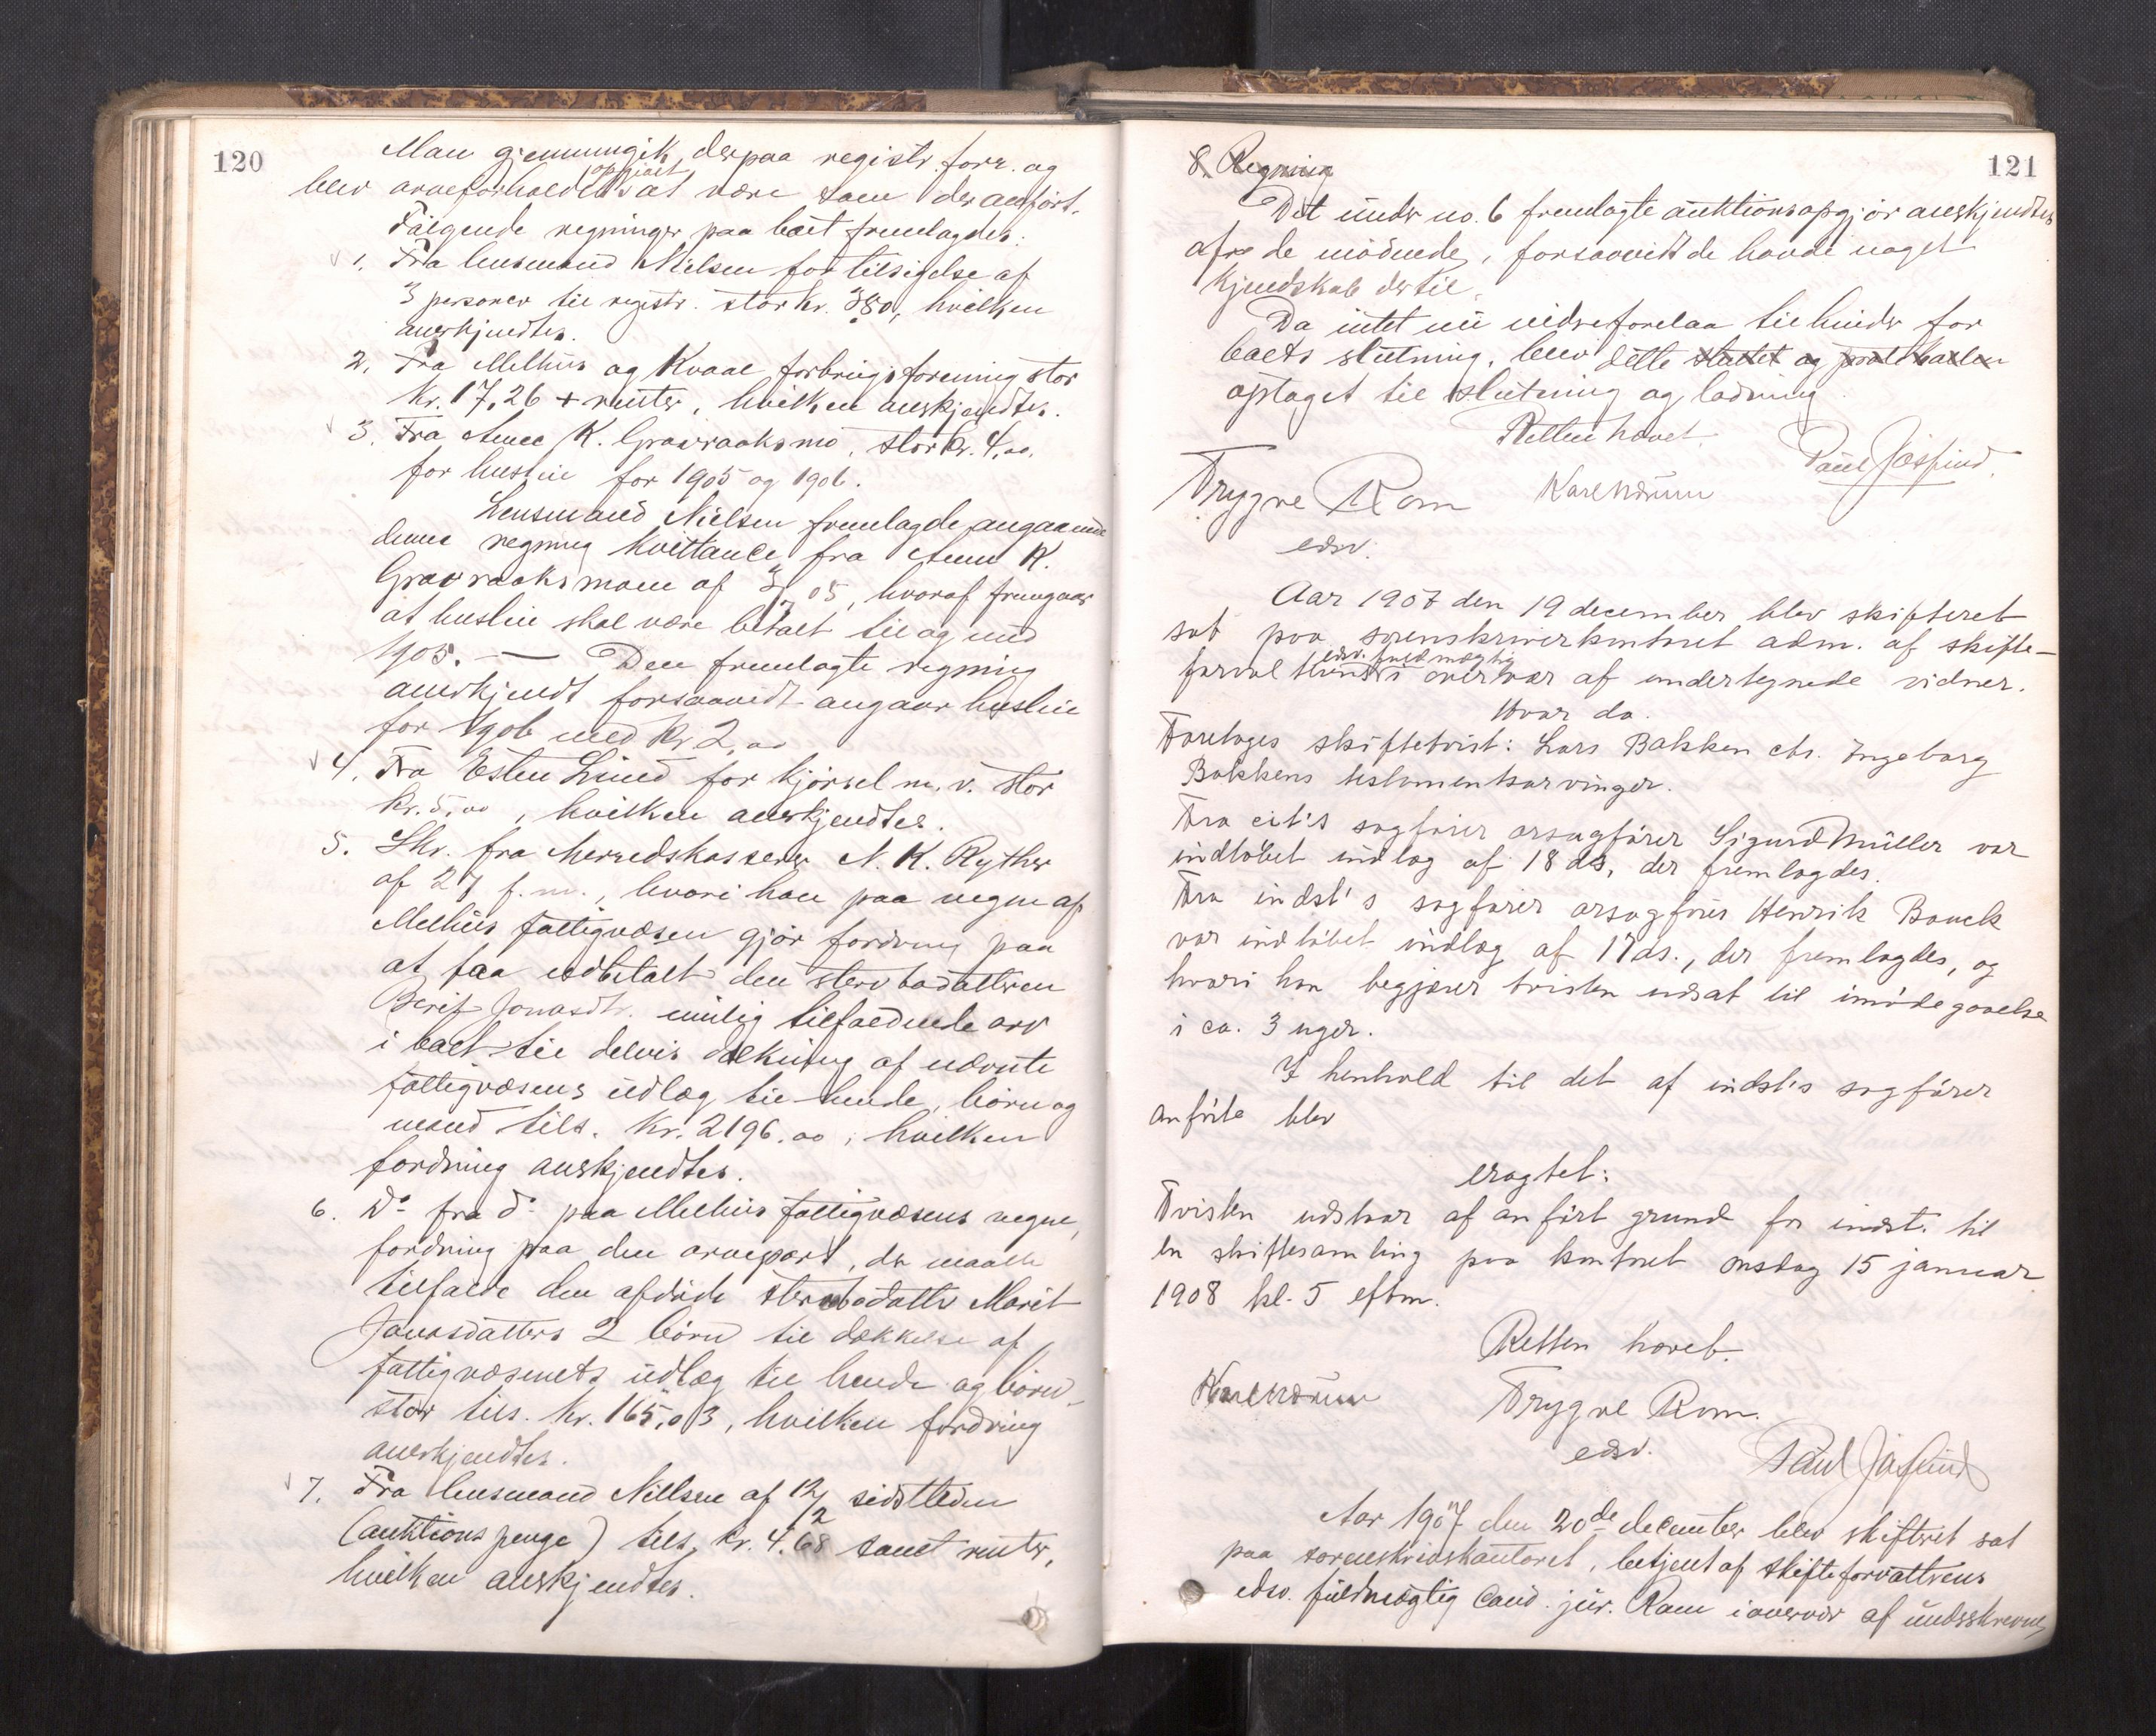 120
Man gjennemgik derpaa registr. forr. og
blev arveforholdet opgivet at være som der anført.
Følgende regninger paa boet fremlagdes:
1. Fra lensmand Nielsen for tilsigelse af
3 personer til registr. stor kr. 3.80, hvilken
anerkjendtes.
2. Fra Melhus og Kvaal forbrugsforening stor
kr. 17,26 + renter, hvilken anerkjendtes.
3. Fra Anne K. Gravraaksmo, stor kr. 4,00.
for husleie for 1905 og 1906.
Lensmand Nielsen fremlagde angaaende
denne regning kvittance fra Anne K.
Gravraaksmoen af 05, hvoraf fremgaar
at husleie skal være betalt til og med
1905. — Den fremlagte regning
anerkjendt forsaavidt angaar husleie
for 1906 med kr 2,00
4. Fra Esten Lund for kjørsel m. v. stor
kr. 5,00, hvilken anerkjendtes.
5. Skr. fra herredskasserer N. K. Ryther
af 27 f. m., hvori han paa vegne af
Melhus fattigvæsen gjør fordring paa
at faa udbetalt den stervbodatteren
Berit Jonasdtr. mulig tilfaldende arv
i boet til delvis dækning af nævnte
fattigvæsens udlæg til hende, børn og
mand tils. kr. 2196.00, hvilken
fordring anerkjendtes.
6. Do fra do paa Melhus fattigvæsens vegne,
fordring paa den arvepart, der maatte
tilfalde den afdøde stervbodatter Marit
Jonasdatters 2 børn til dækkelse af
fattigvæsenets udlæg til hende og børn,
stor tils. kr. 165,03, hvilken fordring
anerkjendtes.
7. Fra lensmand Nielsen af 12/12 sidstleden
(auktionspenge) tils. kr. 4.68 samt renter,
hvilken anerkjendtes.
121
8. Regning
Det under no. 6 fremlagte auktionsopgjør anerkjendtes
af de mødende, forsaavidt de havde noget
kjendskab dertil.
Da intet nu videre forelaa til hinder for
boets slutning, blev dette sluttet og
optaget til slutning og lodning.
Retten hævet.
Trygve Rom
edsv.
Karl
Paul Jøsfind.
Aar 1907 den 19 december blev skifteret
sat paa sorenskriverkontoret adm. af skifte-
forvalterens edsv. fuldmægtig i overvær af undertegnede vidner.
Hvor da.
Foretoges skiftetvist: Lars Bakken ctr. Ingeborg
Bakkens testamentsarvinger.
Fra cit's sagfører orsagfører Sigurd Müller var
indløbet indlæg af 18 ds, der fremlagdes.
Fra indst's sagfører orsagfører Henrik Bauck
var indløbet indlæg af 17 ds., der fremlagdes, og
hvori han begjærer tvisten udsat til imødegaaelse
i ca. 3 uger.
I henhold til det af indst's sagfører
anførte blev
eragtet:
Tvisten udstaar af anført grund for indst. til
en skiftesamling paa kontoret onsdag 15 januar
1908 kl. 5 eftm.
Retten hævet.
Karl
Trygve Rom.
edsv.
Paul Jøsfind
Aar 1907 den 20de december blev skifteret sat
paa sorenskriverkontoret, betjent af skifteforvalterens
edsv. fuldmægtig cand. jur. Rom i overvær af underskrevne